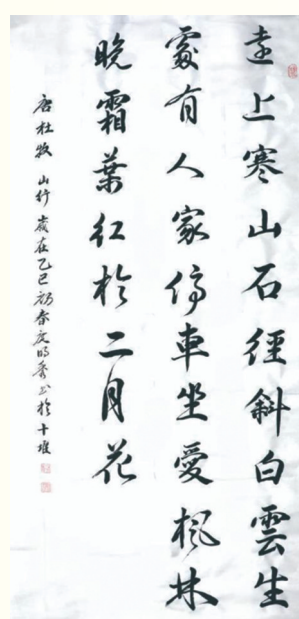 遠上寒山石徑斜白雲生
處有人家停車坐愛楓林
晚霜葉紅於二月花
唐杜牧 山行 歲在乙巳初春友明秀书於十堰